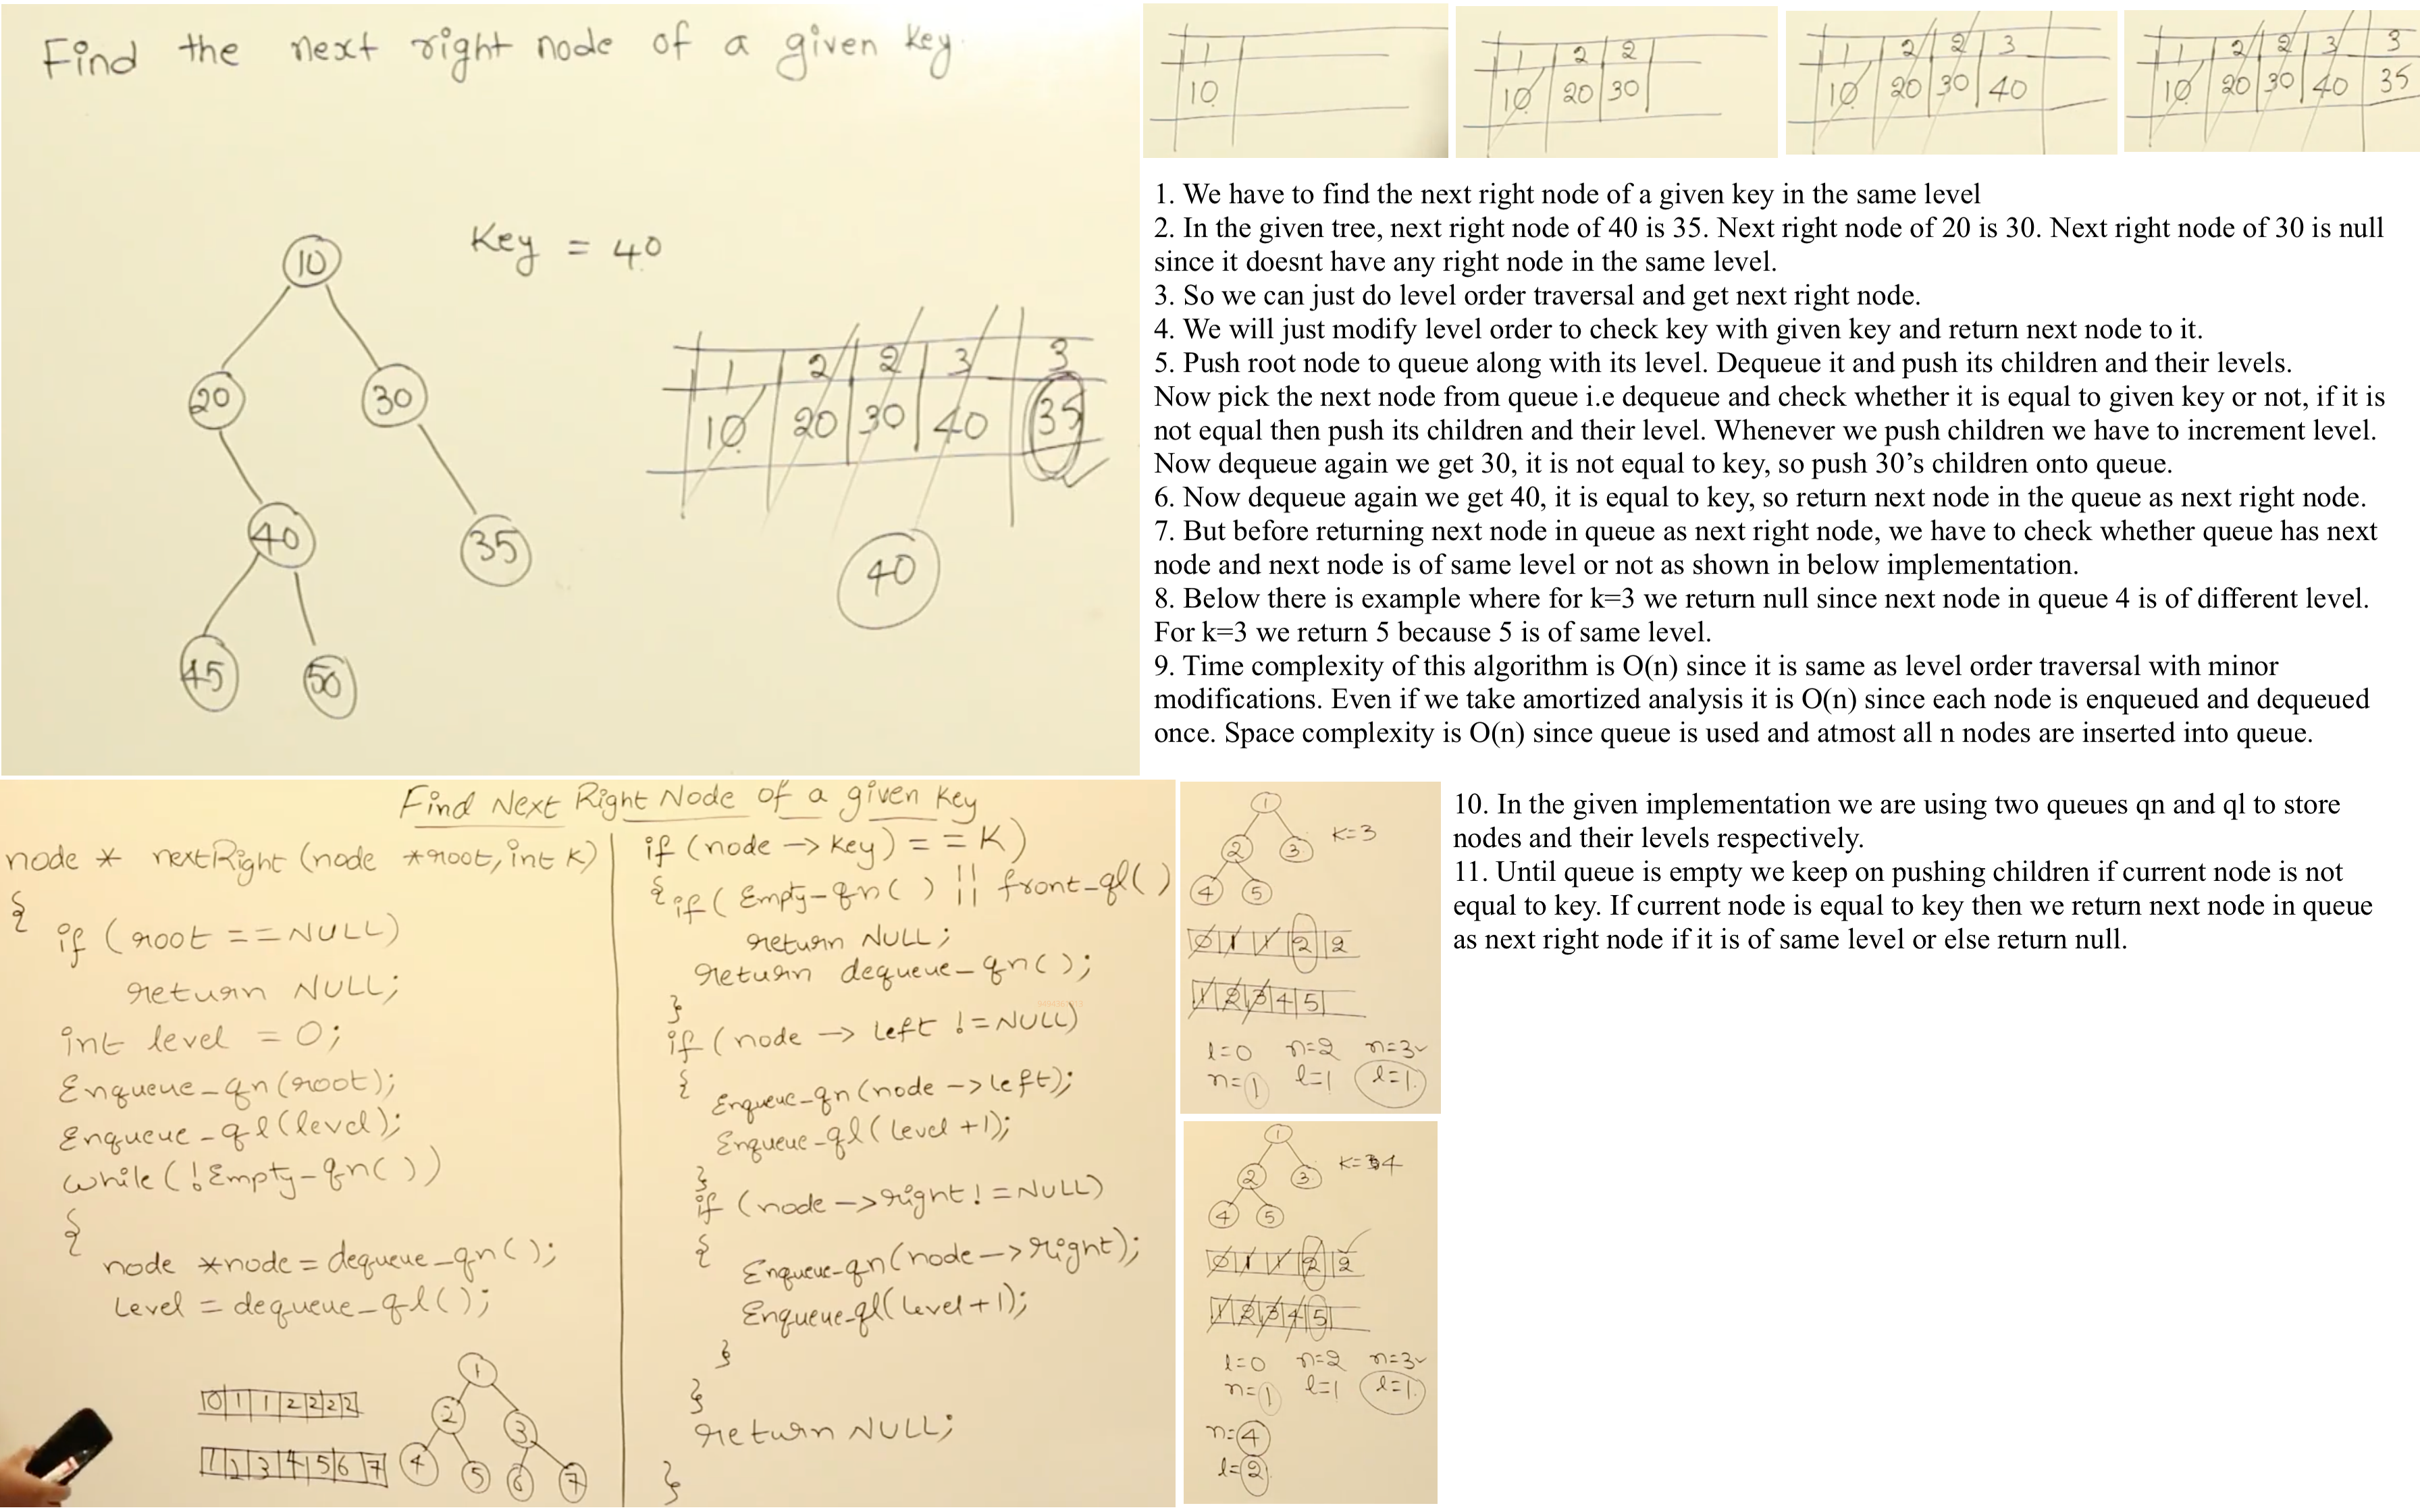 Find the next right node of a given key
Key = 40
10
20 30
40 35
45 50
1 2 2 3 3
10 20 30 40 35
40
1
10
1 2 2
10 20 30
1 2 2 3
10 20 30 40
1 2 2 3 3
10 20 30 40 35
1. We have to find the next right node of a given key in the same level
2. In the given tree, next right node of 40 is 35. Next right node of 20 is 30. Next right node of 30 is null
since it doesnt have any right node in the same level.
3. So we can just do level order traversal and get next right node.
4. We will just modify level order to check key with given key and return next node to it.
5. Push root node to queue along with its level. Dequeue it and push its children and their levels.
Now pick the next node from queue i.e dequeue and check whether it is equal to given key or not, if it is
not equal then push its children and their level. Whenever we push children we have to increment level.
Now dequeue again we get 30, it is not equal to key, so push 30’s children onto queue.
6. Now dequeue again we get 40, it is equal to key, so return next node in the queue as next right node.
7. But before returning next node in queue as next right node, we have to check whether queue has next
node and next node is of same level or not as shown in below implementation.
8. Below there is example where for k=3 we return null since next node in queue 4 is of different level.
For k=3 we return 5 because 5 is of same level.
9. Time complexity of this algorithm is O(n) since it is same as level order traversal with minor
modifications. Even if we take amortized analysis it is O(n) since each node is enqueued and dequeued
once. Space complexity is O(n) since queue is used and atmost all n nodes are inserted into queue.
Find Next Right Node of a given key
node * nextRight (node *root, int k)
{
if (root == NULL)
return NULL;
int level = 0;
Enqueue_qn(root);
Enqueue_ql(level);
while(!Empty-qn())
{
node *node = dequeue_qn();
Level = dequeue_ql();
0 1 1 2 2 2 2
1 2 3 4 5 6 7
1
2 3
4 5 6 7
if (node -> key) == K)
{ if( Empty-qn( ) || front_ql( )
return NULL;
return dequeue_qn();
}
if (node -> left != NULL)
{ Enqueue-qn(node -> left);
Enqueue_ql(level +1);
}
if (node -> right != NULL)
{ Enqueue-qn(node -> right);
Enqueue-ql(level+1);
}
}
return NULL;
}
1
K=3
2 3
4 5
0 1 1 2 2
1 2 3 4 5
l=0 n=2 n=3
n=1 l=1 l=1
1
K=34
2 3
4 5
0 1 1 2 2
1 2 3 4 5
l=0 n=2 n=3
n=1 l=1 l=1
n=4
l=2
10. In the given implementation we are using two queues qn and ql to store
nodes and their levels respectively.
11. Until queue is empty we keep on pushing children if current node is not
equal to key. If current node is equal to key then we return next node in queue
as next right node if it is of same level or else return null.